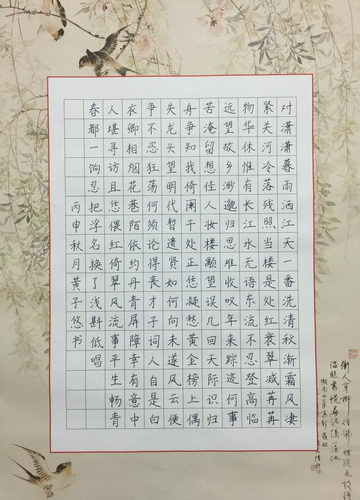 对潇潇暮雨洒江天一番洗清秋渐霜风凄
紧关河冷落残照当楼是处红衰翠减苒苒
物华休惟有长江水无语东流不忍登高临
远望故乡渺邈归思难收叹年来踪迹何事
苦淹留想佳人妆楼颙望误几回天际识归
舟争知我倚阑干处正恁凝愁黄金榜上偶
失龙头望明代暂遗贤如何向未遂风云便
争不恣狂荡何须论得丧才子词人自是白
衣卿相烟花巷陌依约丹青屏障幸有意中
人堪寻访且恁偎红倚翠风流事平生畅青
春都一饷忍把浮名换了浅斟低唱
丙申秋月黄子悠书